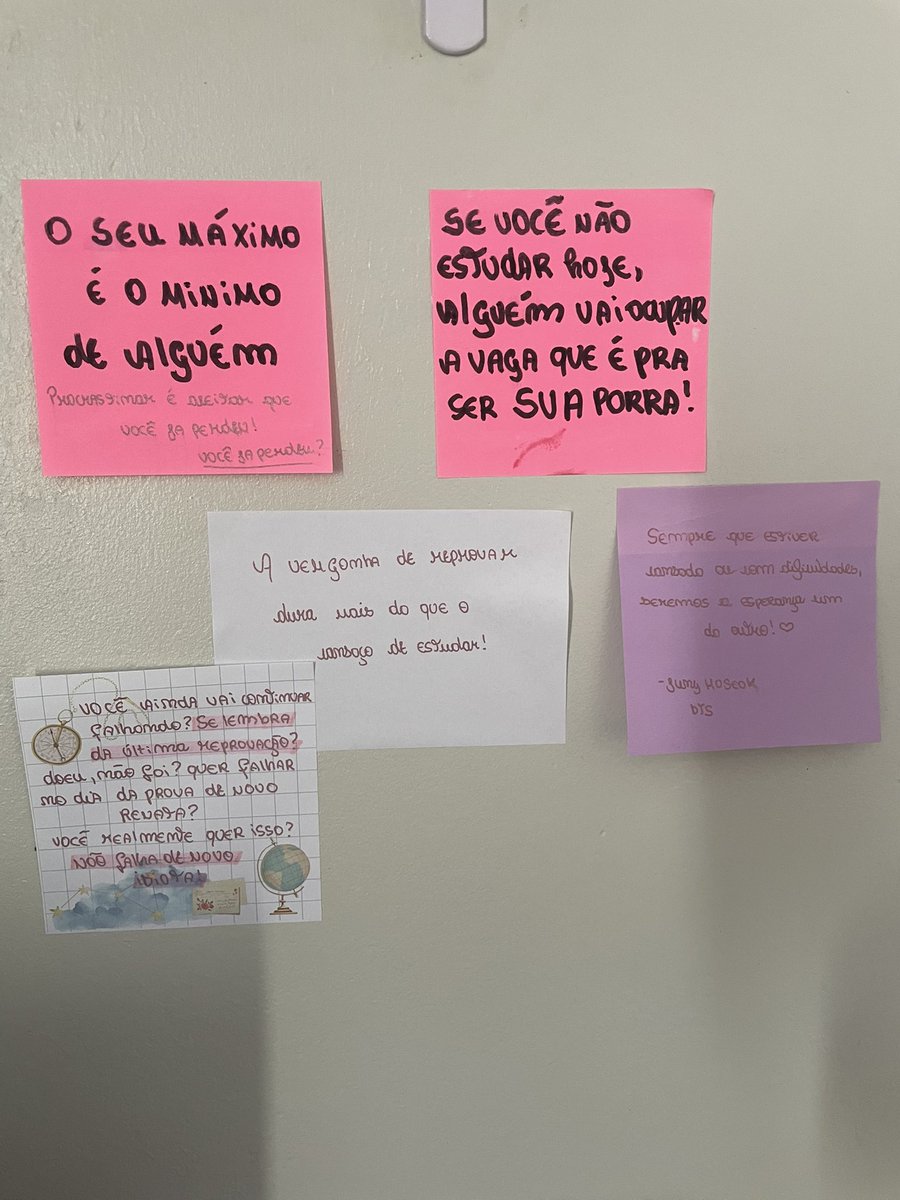 O SEU MÁXIMO
É O MINIMO
DE ALGUÉM
PROCRASTINAR É ACEITAR QUE
VOCÊ JA PERDEU!
VOCÊ JA PERDEU?
SE VOCÊ NÃO
ESTUDAR HOJE,
ALGUÉM VAI OCUPAR
A VAGA QUE É PRA
SER SUA PORRA!
A VERGONHA DE REPROVAR
DURA MAIS DO QUE O
CANSAÇO DE ESTUDAR!
SEMPRE QUE ESTIVER
CANSADO OU COM DIFICULDADES,
SEREMOS A ESPERANÇA UM
DO OUTRO! ♡
-JUNG HOSEOK
BTS
VOCÊ AINDA VAI CONTINUAR
FALHANDO? SE LEMBRA
DA ÚLTIMA REPROVAÇÃO?
DOEU, NÃO FOI? QUER FALHAR
NO DIA DA PROVA DE NOVO
RENATA?
VOCÊ REALMENTE QUER ISSO?
NÃO FALHA DE NOVO
IDIOTA!